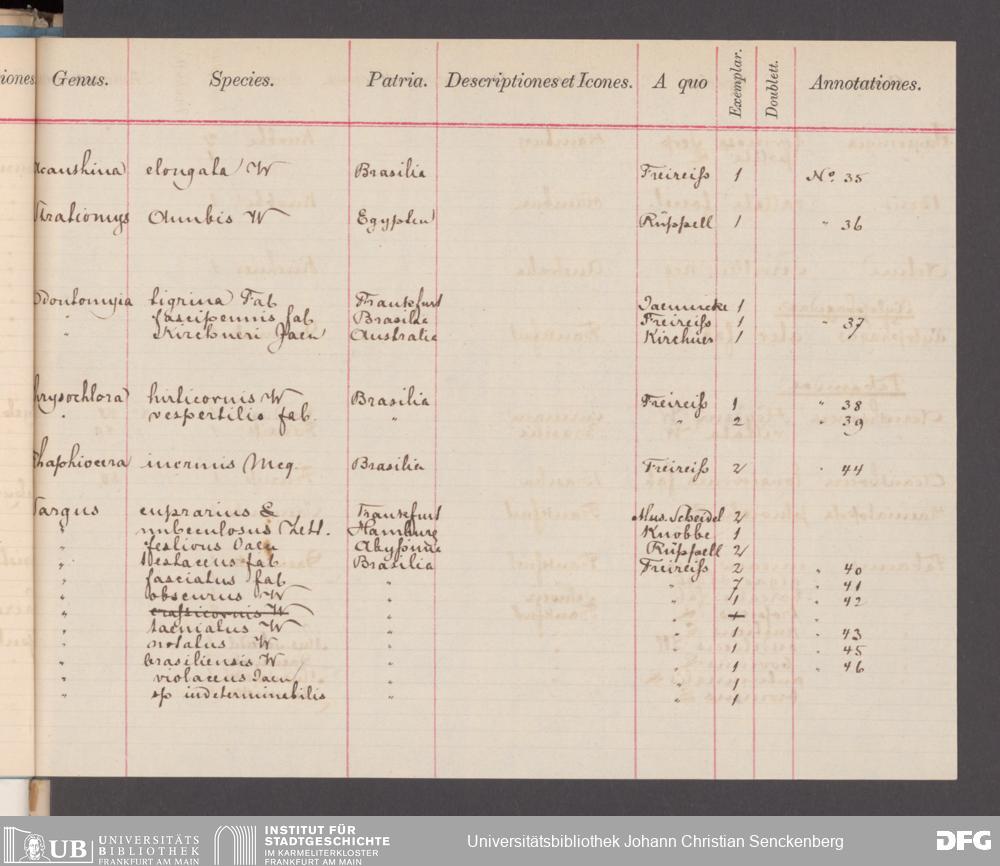 iones. Genus. Species. Patria. Descriptiones et Icones. A quo Exemplar. Doublett. Annotationes.
elongata W Brasilia Freireiß 1 No. 35
Stratiomys Anubis W Egypten Rüppell 1 " 36
Odontomyia tigrina Fab Frankfurt Jaennicke 1
" fascipennis fab Brasilia Freireiß 1 " 37
" Kirchneri Jaen Australia Kirchner 1
hrysochlora hirticornis W Brasilia Freireiß 1 " 38
" vespertilio fab " " 2 " 39
haphiocera inermis Meg. Brasilia Freireiß 2 " 44
Sargus cuprarius L Frankfurt Mus. Scheidel 2
" nubeculosus Zett. Hamburg Knobbe 1
" festivus Jaen Abyßinia Rüppell 2
" testaceus fab Brasilia Freireiß 2 " 40
" fasciatus fab " " 7 " 41
" obscurus W " " 1 " 42
" crassicornis W " " 1 "
" taeniatus W " " 1 " 43
" notatus W " " 1 " 45
" brasiliensis W " " 1 " 46
" violaceus Jaen " " 1
" sp indeterminebilis " " 1
UB UNIVERSITÄTS
BIBLIOTHEK
FRANKFURT AM MAIN
INSTITUT FÜR
STADTGESCHICHTE
IM KARMELITERKLOSTER
FRANKFURT AM MAIN
Universitätsbibliothek Johann Christian Senckenberg
DFG